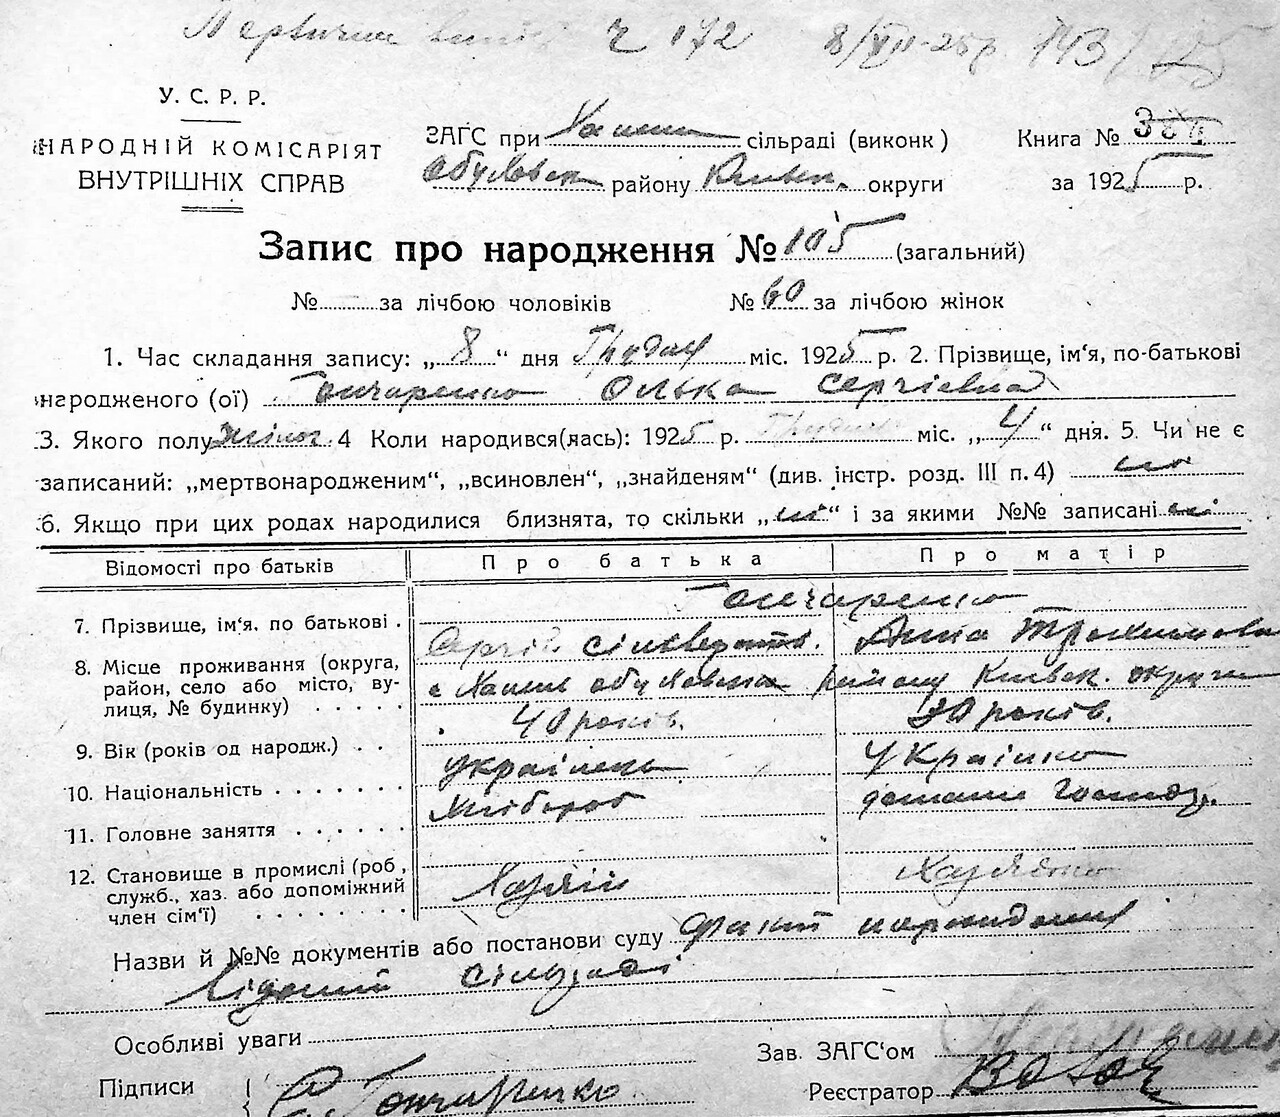 ч 172 8/XII-25р. 143
У. С. Р. Р.
НАРОДНІЙ КОМІСАРІЯТ
ВНУТРІШНІХ СПРАВ
ЗАГС при сільраді (виконк)
району Київськ. округи
Книга №
за 1925 р.
Запис про народження № 105 (загальний)
№ за лічбою чоловіків № 60 за лічбою жінок
1. Час складання запису: „8“ дня Грудня міс. 1925 р. 2. Прізвище, ім'я, по-батькові
народженого (ої) Гончаренко Олька Сергієвна
3. Якого полу жіноч. 4 Коли народився(лась): 1925 р. Грудень міс. „4“ дня. 5. Чи не є
записаний: „мертвонародженим“, „всиновлен“, „знайденям“ (див. інстр. розд. III п. 4) ні
6. Якщо при цих родах народилися близнята, то скільки „ні“ і за якими №№ записані ні
Відомості про батьків Про батька Про матір
Гончаренко
7. Прізвище, ім'я. по батькові . Сергій Анна Трохимовна
8. Місце проживання (округа, район, село або місто, вулиця, № будинку) . . . . . району Київськ. округи
40 років. 30 років.
9. Вік (років од народж.) . .
10. Національність . . . . . . . українець Українка
11. Головне заняття . . . . . . Хлібороб домашн. господ.
12. Становище в промислі (роб, служб., хаз. або допоміжний член сім'ї) . . . . . . . . Хазяїн Хазяйка
Назви й №№ документів або постанови суду факт народження
відомий сільраді
Особливі уваги
Зав. ЗАГС'ом
Підписи С. Гончаренко
Реєстратор